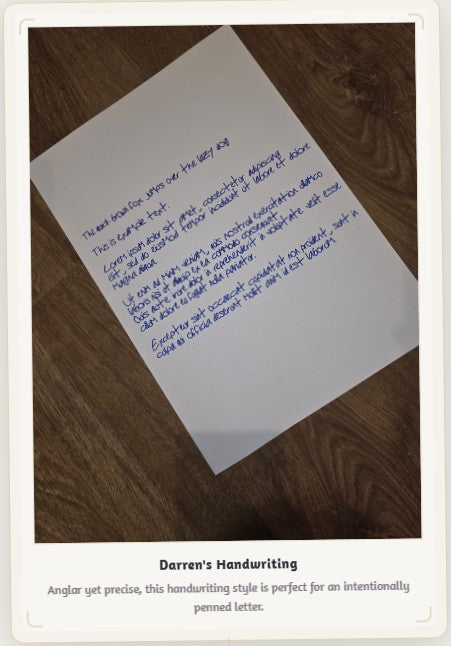 The quick brown fox jumps over the lazy dog
This is example text.
Lorem ipsum dolor sit amet, consectetur adipiscing
elit, sed do eiusmod tempor incididunt ut labore et dolore
magna aliqua.
Ut enim ad minim veniam, quis nostrud exercitation ullamco
laboris nisi ut aliquip ex ea commodo consequat.
Duis aute irure dolor in reprehenderit in voluptate velit esse
cillum dolore eu fugiat nulla pariatur.
Excepteur sint occaecat cupidatat non proident, sunt in
culpa qui officia deserunt mollit anim id est laborum.
Darren's Handwriting
Anglar yet precise, this handwriting style is perfect for an intentionally
penned letter.